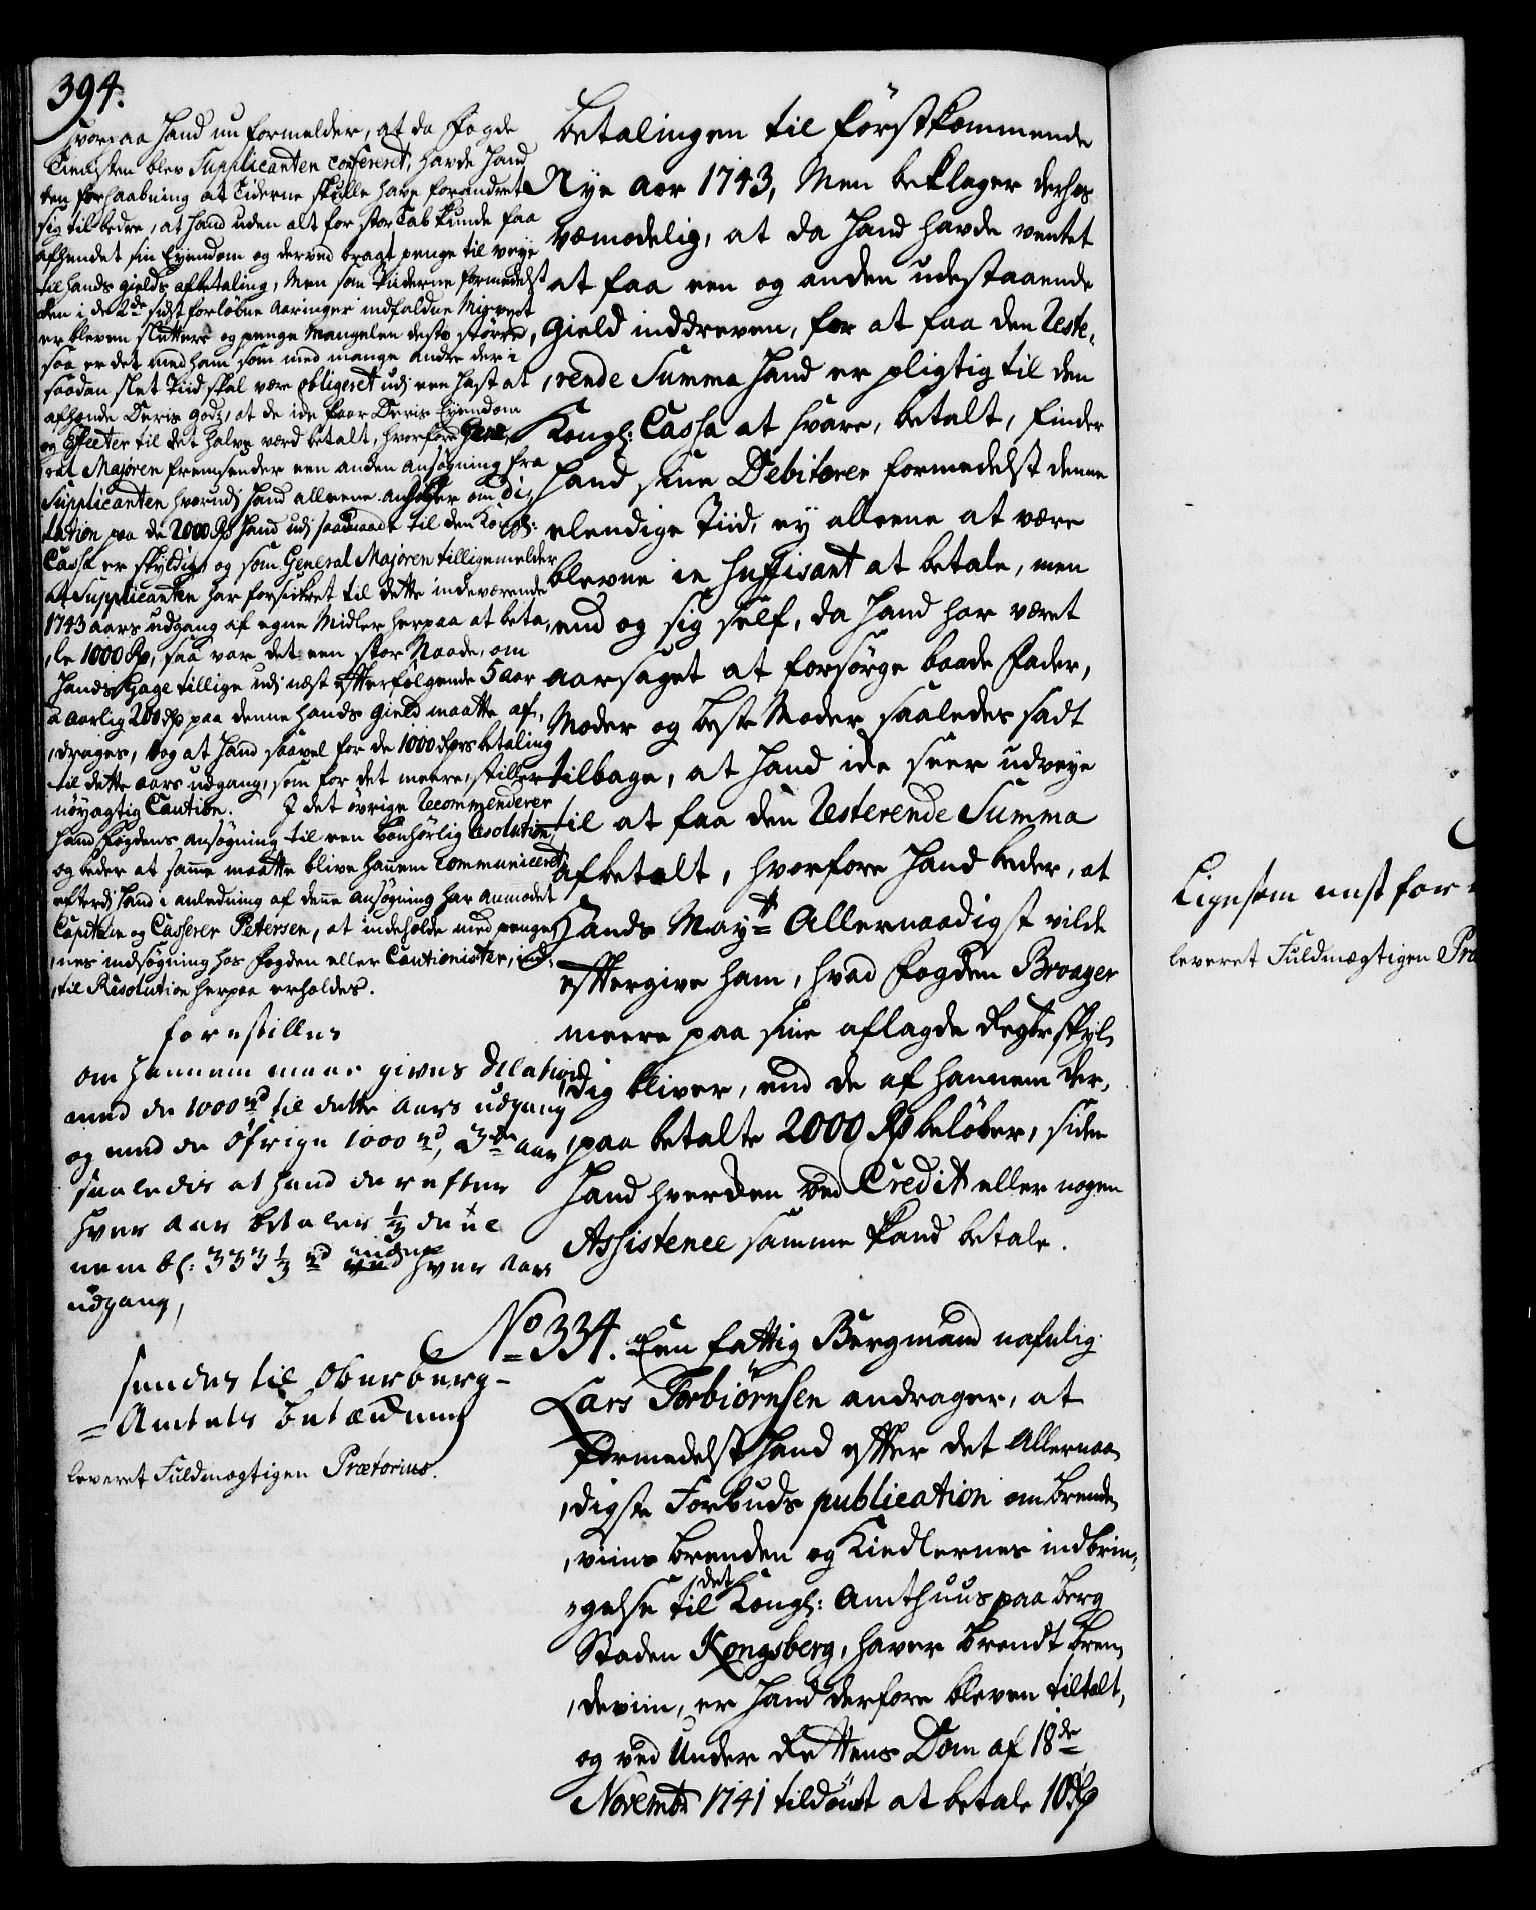 394.
hvorpaa Hand nu formelder, at da Fogde
Tienisten blev Supplicanten confereret, havde Hand
den forhaabning at Tiderne skulle have forandret
sig til bedre, at Hand uden alt for stor Tab kunde faa
afhendet sin Eyendom og derved bragt penge til veye
til Hands gields afbetaling, Men som Tiiderne formedelst
den i de 2de sidst forløbne Aaringer indfaldne Misvext
er bleven slettere og penge Mangelen desto større,
saa er det med ham som med mange andre der i
saadan slet Tiid skal være obligeret udj een hast at
afhende Deris godz, at de icke faar Deris Eyendom
og Effecter til det halve værd betalt, hvorfore Gene-
ral Majoren fremsender een anden ansøgning fra
Supplicanten hvorudj Hand alleene anholder om di-
lation paa de 2000 Rdr Hand udj saa maade til den Kongl:
Cassa er skyldig, og som General Majoren tillige melder
at Supplicanten har forsickret til dette indeværende
1743 aars udgang af egne Midler herpaa at beta-
le 1000 Rdr, saa var det een stor Naade, om
Hands Gage tillige udj næst efterfølgende 5 aar
a aarlig 200 Rdr paa denne Hands gield maatte af-
drages, og at Hand saavel for de 1000 Rdrs betaling
til dette aars udgang, som for det meere, stiller
nøyagtig Caution. I det øvrige Recommenderer
Hand Fogdens ansøgning til een bønhørlig Resolution,
og beder at samme maatte blive hannem communiceret,
efterdj Hand i anledning af denne ansøgning har anmodet
Capitain og Casserer Petersen, at indeholde med penge-
nes indsøgning hos Fogden eller Cautionister, ind-
til Resolution herpaa erholdes.
forestilles
om hannem maae gives Dilation
med de 1000 rd til dette Aars udgang
og med de øfrige 1000 rd, 3de aar
saaledis at hand derefter
hver Aar betaler 1/3 deel
nembl: 333 1/3 rd inden hver Aars
udgang,
sendes til Oberberg-
Amtets betænkning
leveret Fuldmægtigen Prætorius.
betalingen til förstkommende
Nye aar 1743, Men beklager derhos
vemodelig, at da Hand havde ventet
at faa een og anden udestaaende
Gield inddreven, for at faa den Reste-
rende Summa Hand er pligtig til den
Kongl: Cassa at svare, betalt, finder
Hand sine Debitorer formedelst denne
elendige Tiid, ey alleene at være
blevne in suffisant at betale, men
end og sig self, da Hand har været
aarsaget at forsørge baade Fader,
Moder og beste Moder, saaledes sadt
tilbage, at Hand icke seer udveye
til at faa den Resterende Summa
afbetalt, hvorfore Hand beder, at
Hands Mayt Allernaadigst vilde
eftergive ham, hvad Fogden Broager
meere paa sine aflagde Regnskr skyl-
dig bliver, end de af hannem der-
paa betalte 2000 Rdr beløber, siden
Hand hverken ved Credit eller nogen
Assistence samme kand betale.
No 334. Een fattig Bergmand nafnlig
Lars Torbiørnsen andrager, at
formedelst Hand efter det Allernaa-
digste Forbuds publication om brende-
viins brenden og Kiedlernes indbrin-
gelse til det Kongl: Amthuus paa berg
Staden Kongsberg, haver brendt bren-
deviin, er Hand derfore bleven tiltalt,
og ved Under Rettens Dom af 18de
Novembr 1741 tildømt at betale 10 Rdr
Ligesom nest for
leveret Fuldmægtigen Præ